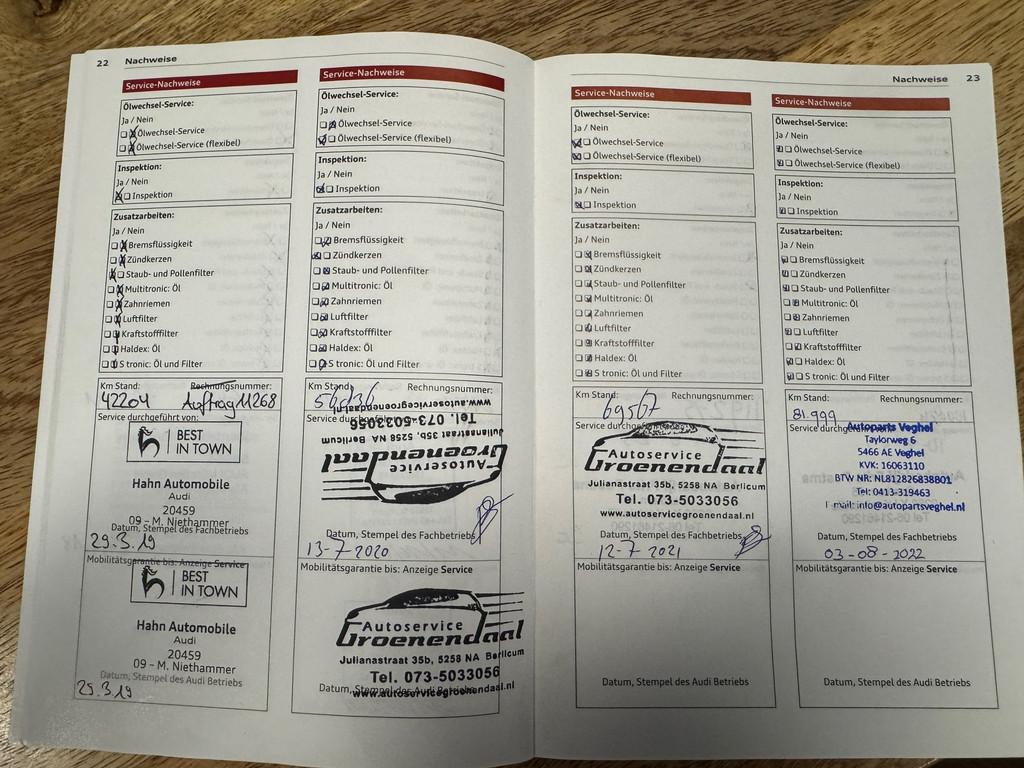 22 Nachweise
Service-Nachweise
Ölwechsel-Service:
Ja / Nein
Ölwechsel-Service
Ölwechsel-Service (flexibel)
Inspektion:
Ja / Nein
Inspektion
Zusatzarbeiten:
Ja / Nein
Bremsflüssigkeit
Zündkerzen
Staub- und Pollenfilter
Multitronic: Öl
Zahnriemen
Luftfilter
Kraftstofffilter
Haldex: Öl
S tronic: Öl und Filter
Km Stand: Rechnungsnummer:
42204 Auftrag 11268
Service durchgeführt von:
BEST
IN TOWN
Hahn Automobile
Audi
20459
09 – M. Niethammer
Datum, Stempel des Fachbetriebs
29.3.19
Mobilitätsgarantie bis: Anzeige Service
BEST
IN TOWN
Hahn Automobile
Audi
20459
09 – M. Niethammer
Datum, Stempel des Audi Betriebs
29.3.19
Service-Nachweise
Ölwechsel-Service:
Ja / Nein
Ölwechsel-Service
Ölwechsel-Service (flexibel)
Inspektion:
Ja / Nein
Inspektion
Zusatzarbeiten:
Ja / Nein
Bremsflüssigkeit
Zündkerzen
Staub- und Pollenfilter
Multitronic: Öl
Zahnriemen
Luftfilter
Kraftstofffilter
Haldex: Öl
S tronic: Öl und Filter
Km Stand: Rechnungsnummer:
www.autoservicegroenendaal.nl
Service
Tel. 073-5033056
Julianastraat 35b, 5258 NA Berlicum
Groenendaal
Autoservice
Datum, Stempel des Fachbetriebs
13-7-2020
Mobilitätsgarantie bis: Anzeige Service
Autoservice
Groenendaal
Julianastraat 35b, 5258 NA Berlicum
Tel. 073-5033056
Datum, Stempel des Audi Betriebs
www.autoservicegroenendaal.nl
Nachweise 23
Service-Nachweise
Ölwechsel-Service:
Ja / Nein
Ölwechsel-Service
Ölwechsel-Service (flexibel)
Inspektion:
Ja / Nein
Inspektion
Zusatzarbeiten:
Ja / Nein
Bremsflüssigkeit
Zündkerzen
Staub- und Pollenfilter
Multitronic: Öl
Zahnriemen
Luftfilter
Kraftstofffilter
Haldex: Öl
S tronic: Öl und Filter
Km Stand: Rechnungsnummer:
69567
Service durchgeführt
Autoservice
Groenendaal
Julianastraat 35b, 5258 NA Berlicum
Tel. 073-5033056
www.autoservicegroenendaal.nl
Datum, Stempel des Fachbetriebs
12-7-2021
Mobilitätsgarantie bis: Anzeige Service
Datum, Stempel des Audi Betriebs
Service-Nachweise
Ölwechsel-Service:
Ja / Nein
Ölwechsel-Service
Ölwechsel-Service (flexibel)
Inspektion:
Ja / Nein
Inspektion
Zusatzarbeiten:
Ja / Nein
Bremsflüssigkeit
Zündkerzen
Staub- und Pollenfilter
Multitronic: Öl
Zahnriemen
Luftfilter
Kraftstofffilter
Haldex: Öl
S tronic: Öl und Filter
Km Stand: Rechnungsnummer:
81.999
Service durchgeführt
Autoparts Veghel
Taylorweg 6
5466 AE Veghel
KVK: 16063110
BTW NR: NL812826838B01
Tel: 0413-319463
E-mail: info@autopartsveghel.nl
Datum, Stempel des Fachbetriebs
03-08-2022
Mobilitätsgarantie bis: Anzeige Service
Datum, Stempel des Audi Betriebs